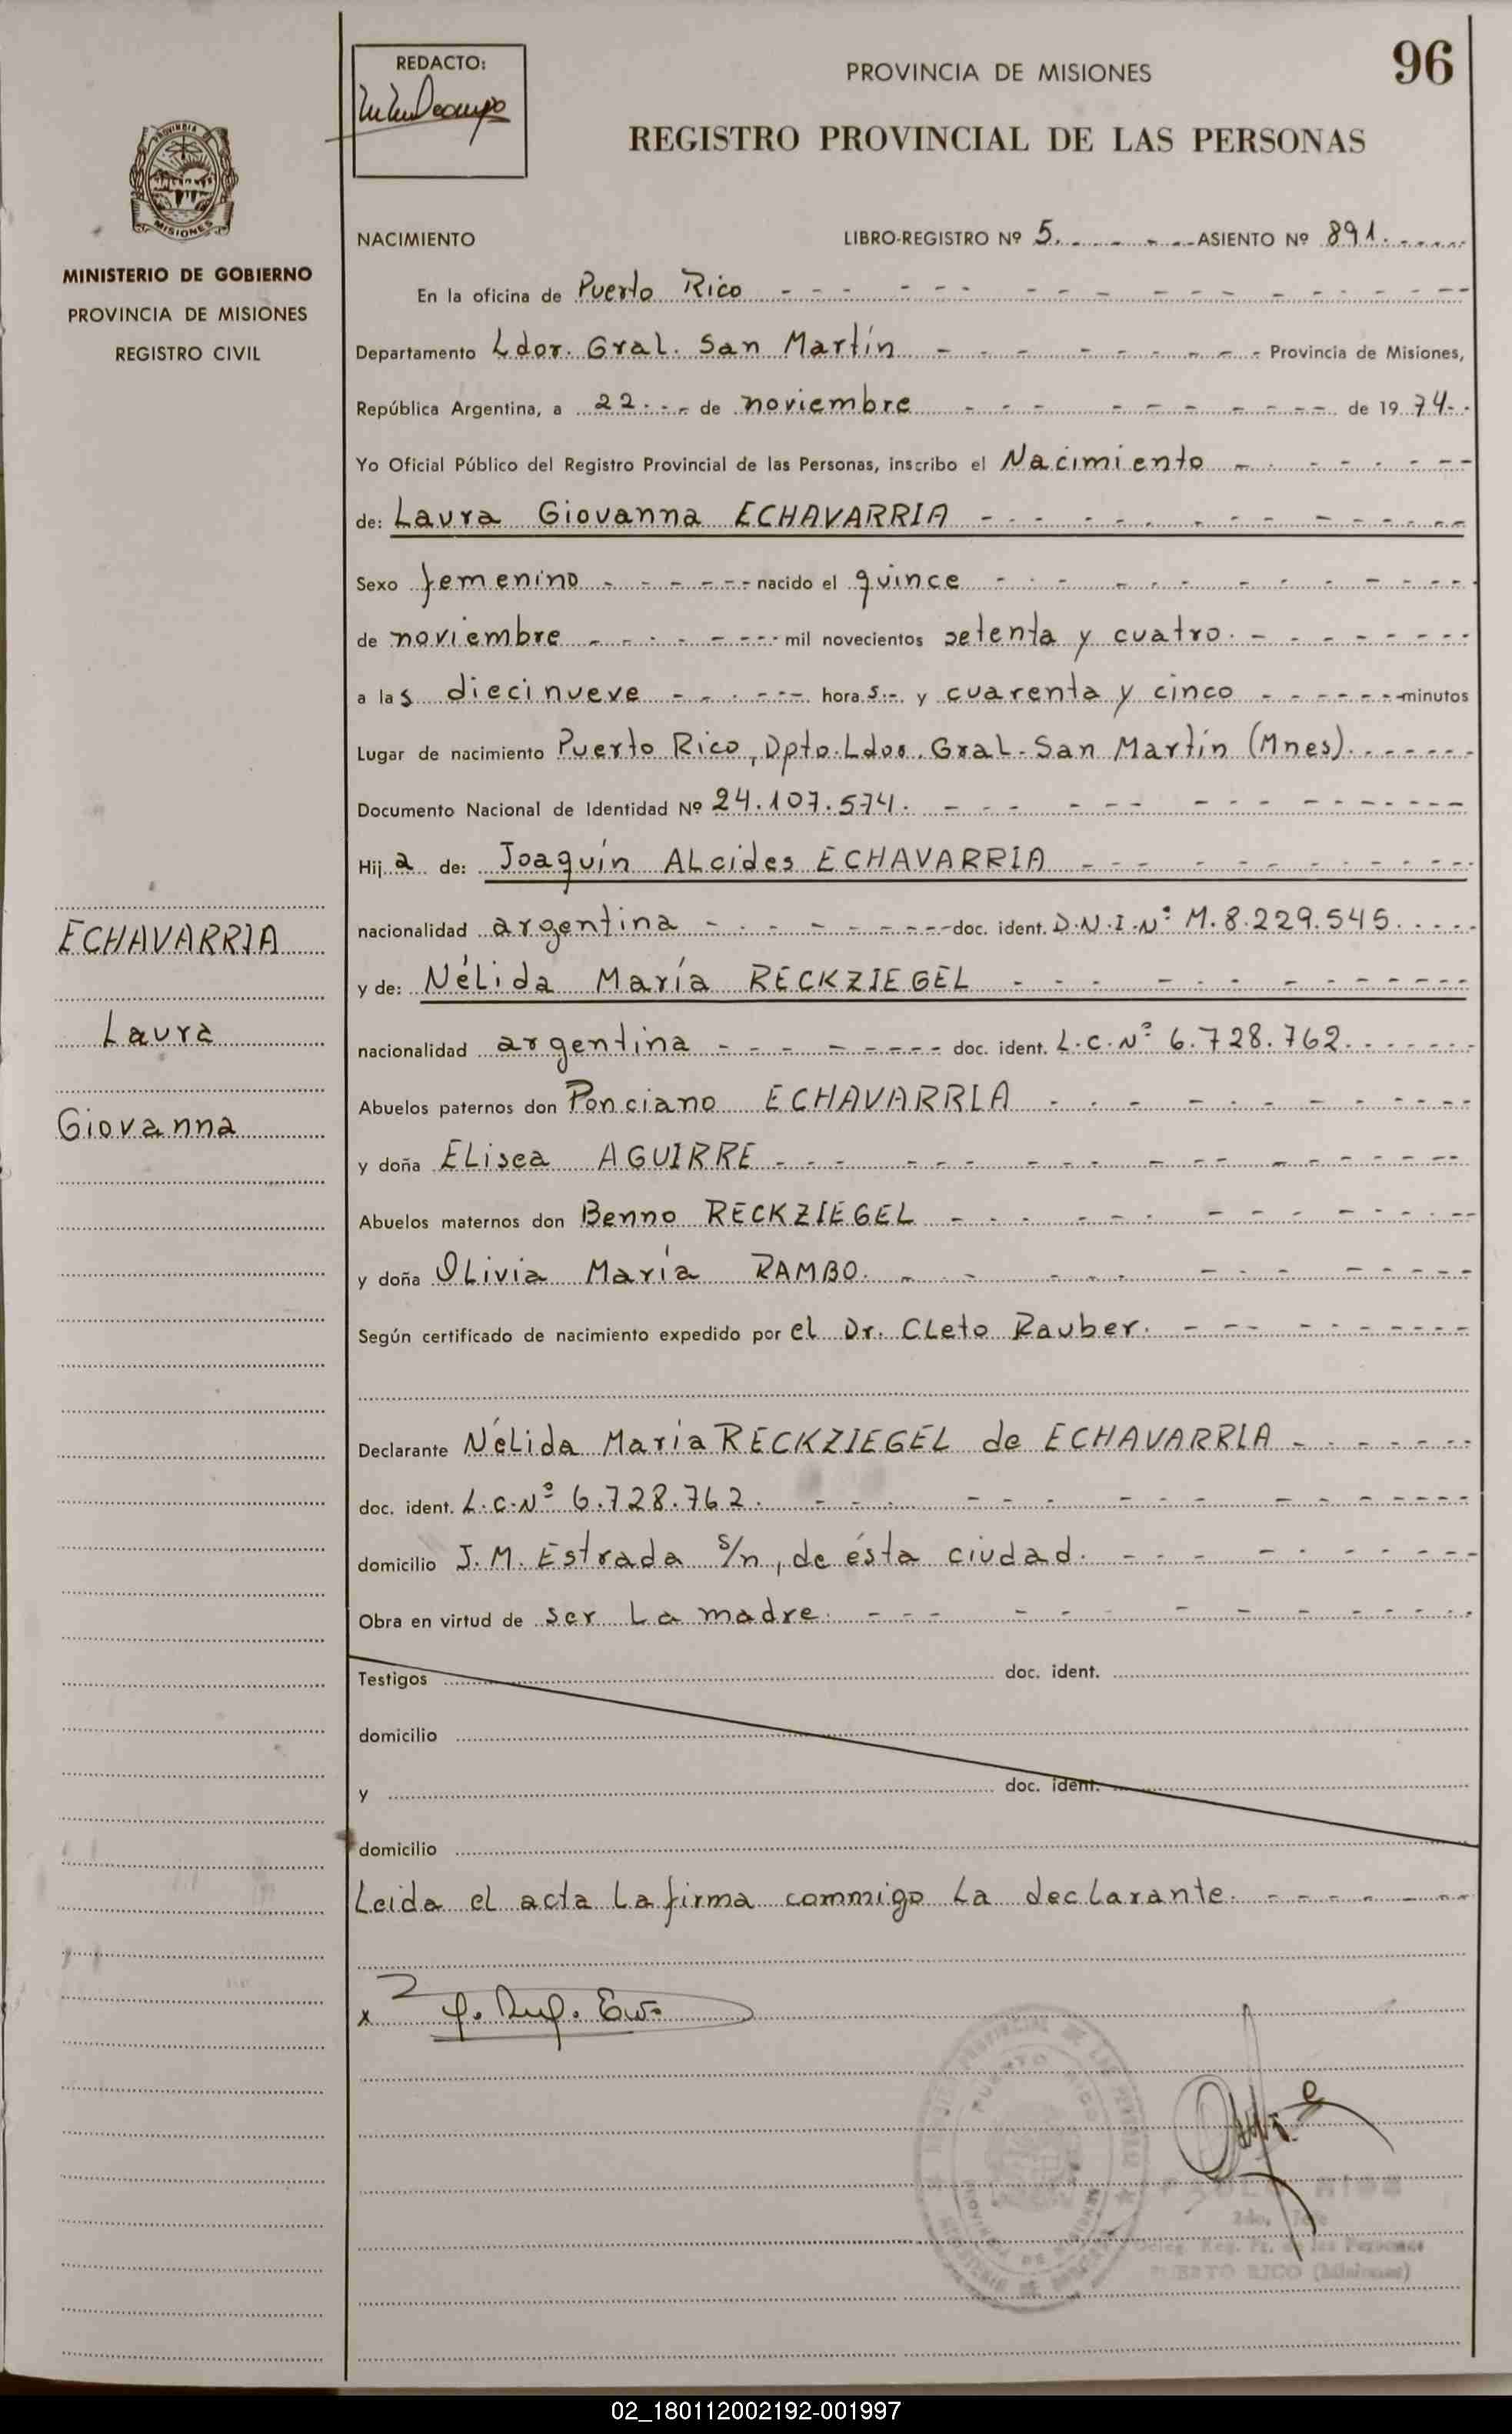 96
REDACTO:
PROVINCIA DE MISIONES
REGISTRO PROVINCIAL DE LAS PERSONAS
MISIONES
MINISTERIO DE GOBIERNO
PROVINCIA DE MISIONES
REGISTRO CIVIL
NACIMIENTO LIBRO-REGISTRO Nº 5. ASIENTO Nº 891.
En la oficina de Puerto Rico
Departamento Ldor. Gral. San Martín Provincia de Misiones,
República Argentina, a 22 de noviembre de 1974
Yo Oficial Público del Registro Provincial de las Personas, inscribo el Nacimiento
de: Laura Giovanna ECHAVARRIA
Sexo femenino nacido el quince
de noviembre mil novecientos setenta y cuatro.
a las diecinueve horas y cuarenta y cinco minutos
Lugar de nacimiento Puerto Rico, Dpto. Ldor. Gral. San Martín (Mnes).
Documento Nacional de Identidad Nº 24.107.574.
Hija de: Joaquín ALcides ECHAVARRIA
nacionalidad argentina doc. ident. D.N.I.Nº M.8.229.545.
y de: Nélida María RECKZIEGEL
nacionalidad argentina doc. ident. L.C.Nº 6.728.762.
Abuelos paternos don Ponciano ECHAVARRIA
y doña ELisea AGUIRRE
Abuelos maternos don Benno RECKZIEGEL
y doña OLivia María RAMBO.
Según certificado de nacimiento expedido por el Dr. CLeto Rauber.
Declarante Nélida María RECKZIEGEL de ECHAVARRIA
doc. ident. L.C.Nº 6.728.762.
domicilio J.M. Estrada s/n, de ésta ciudad.
Obra en virtud de ser La madre.
Testigos doc. ident.
domicilio
y doc. ident.
domicilio
Leida el acta La firma commigo La decLarante.
x
ECHAVARRIA
Laura
Giovanna
PUERTO RICO (Misiones)
02_180112002192-001997